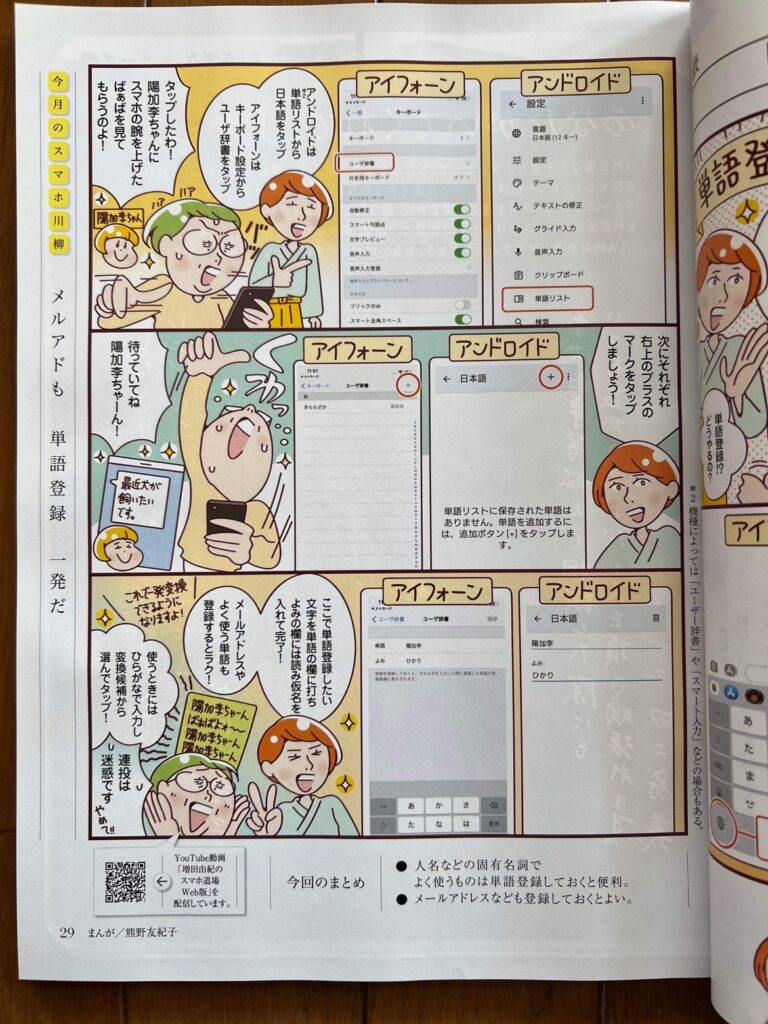 今月のスマホ川柳
メルアドも 単語登録 一発だ
アンドロイド
設定
言語
日本語 (12 キー)
設定
テーマ
テキストの修正
グライド入力
音声入力
クリップボード
単語リスト
検索
アイフォーン
一般
キーボード
キーボード
ユーザ辞書
片手用キーボード
オフ
自動修正
スマート句読点
文字プレビュー
音声入力
音声入力言語
フリックのみ
スマート全角スペース
アンドロイドは
単語リストから
日本語をタップ
アイフォーンは
キーボード設定から
ユーザ辞書をタップ
タップしたわ!
陽加李ちゃんに
スマホの腕を上げた
ばぁばを見て
もらうのよ!
陽加李ちゃん
ハア
ハア
次にそれぞれ
右上のプラスの
マークをタップ
しましょう!
アンドロイド
日本語
+
単語リストに保存された単語は
ありません。単語を追加するに
は、追加ボタン [+] をタップしま
す。
アイフォーン
11:51
キーボード
ユーザ辞書
+
か
きららざか
くわっ
待っていてね
陽加李ちゃーん!
最近犬が
飼いたい
です。
アンドロイド
日本語
陽加李
よみ:
ひかり
アイフォーン
ユーザ辞書
ユーザ辞書
保存
単語
陽加李
よみ
ひかり
あ
か
さ
た
な
は
空白
ここで単語登録したい
文字を単語の欄に打ち
よみの欄には読み仮名を
入れて完了!
メールアドレスや
よく使う単語も
登録するとラク!
これで一発変換
できるように
なりますよ!
使うときには
ひらがなで入力し
変換候補から
選んでタップ!
陽加李ちゃーん
ばぁばよォ〜
陽加李ちゃーん
陽加李ちゃーん
連投は
迷惑です
やめて!!
今回のまとめ
● 人名などの固有名詞で
よく使うものは単語登録しておくと便利。
● メールアドレスなども登録しておくとよい。
YouTube動画
「増田由紀の
スマホ道場
Web版」を
配信しています。
29 まんが/熊野友紀子
単語登
単語登録!?
どうやるの?
*2 機種によっては「ユーザー辞書」や「スマート入力」などの場合もある。
アイ
あ
た
ま
ABC